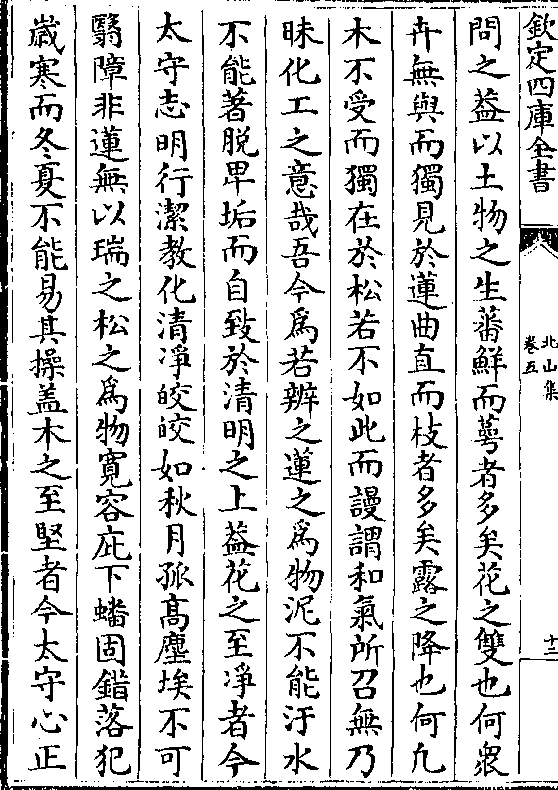 欽定四庫全書
北山集
卷五
十三
問之葢以土物之生蕃鮮而萼者多矣花之雙也何衆
卉無與而獨見於蓮曲直而枝者多矣露之降也何凢
木不受而獨在於松若不如此而謾謂和氣所召無乃
昧化工之意哉吾今為若辨之蓮之為物泥不能汙水
不能著脱卑垢而自致於清明之上葢花之至淨者今
太守志明行潔教化清淨皎皎如秋月孤高塵埃不可
翳障非蓮無以瑞之松之為物寛容庇下蟠固錯落犯
嵗寒而冬夏不能易其操盖木之至堅者今太守心正